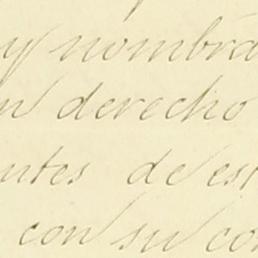 y nombra
n derecho
ntes de est
con su co